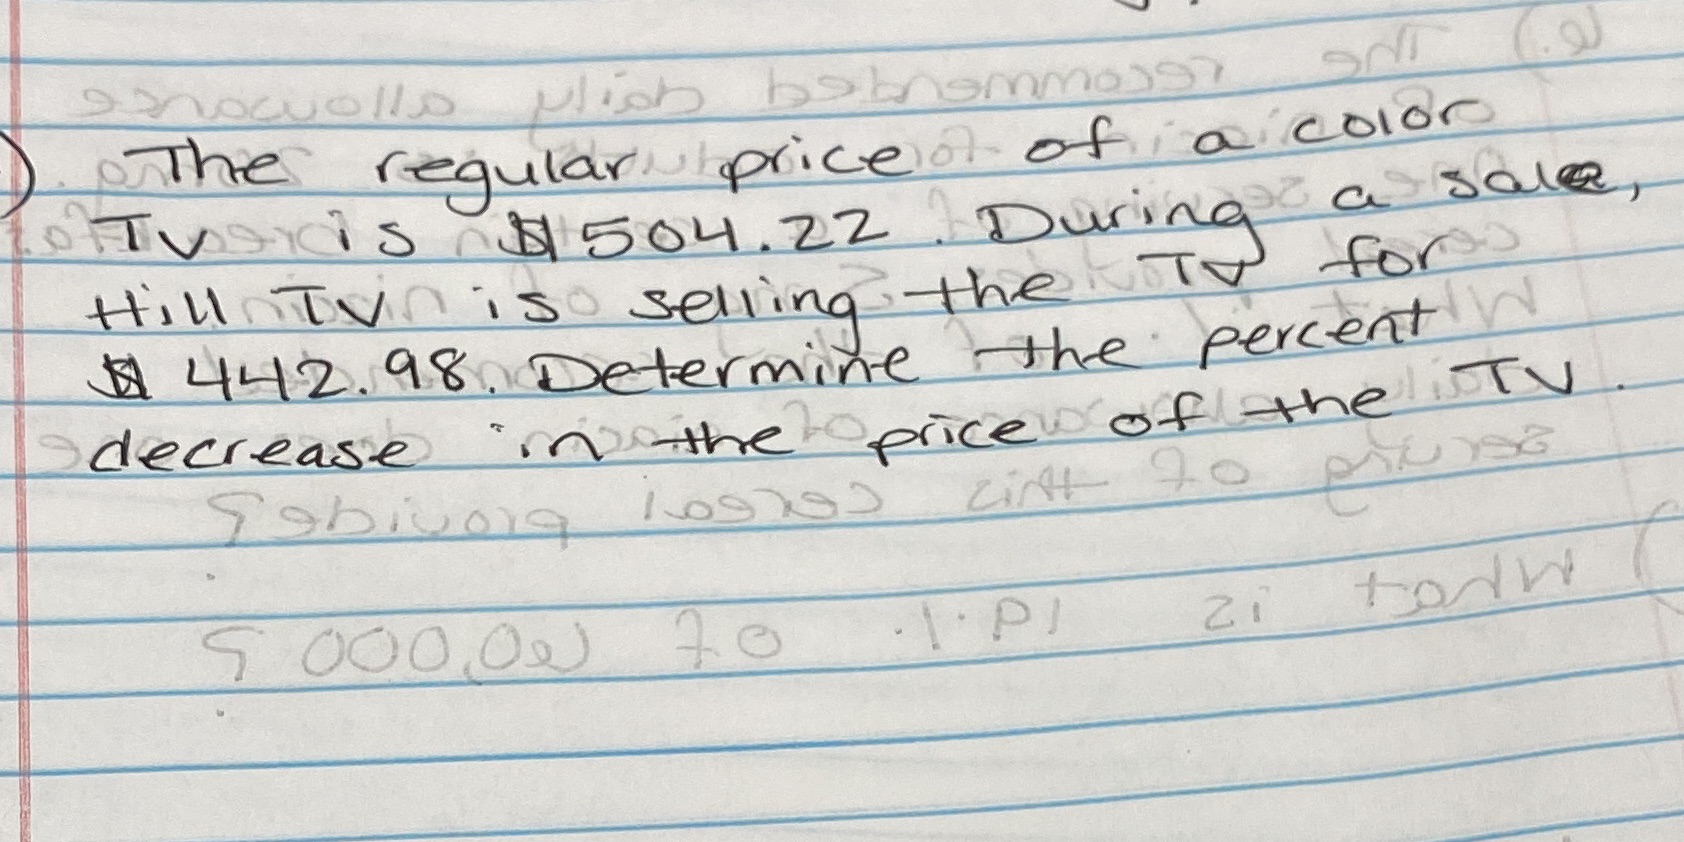 ) The regular price of a color
TV is $504.22. During a sale,
Hill TV is selling the TV for
$442.98. Determine the percent
decrease in the price of the TV.